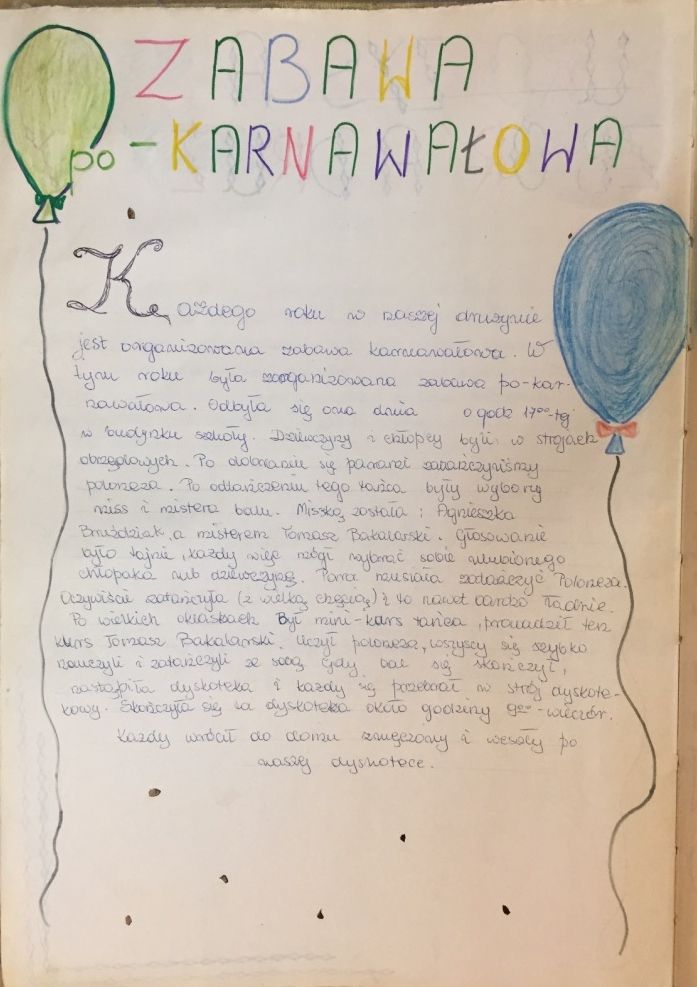 ZABAWA
po-KARNAWAŁOWA
Każdego roku w naszej drużynie
jest organizowana zabawa karnawałowa. W
tym roku była zorganizowana zabawa po-kar-
nawałowa. Odbyła się ona dnia o godz 17⁰⁰-tej
w budynku szkoły. Dziewczyny i chłopcy byli w strojach
obrzędowych. Po dobraniu się parami zatańczyliśmy
poloneza. Po odtańczeniu tego tańca były wybory
miss i mistera balu. Misską została: Agnieszka
Bruździak, a misterem Tomasz Bakalarski. Głosowanie
było tajne, każdy więc mógł wybrać sobie ulubionego
chłopaka lub dziewczynę. Para musiała zatańczyć Poloneza.
Oczywiście zatańczyła (z wielką chęcią) i to nawet bardzo ładnie.
Po wielkich oklaskach Był mini-kurs tańca, prowadził ten
kurs Tomasz Bakalarski. Uczył poloneza, wszyscy się szybko
nauczyli i zatańczyli ze sobą. Gdy bal się skończył,
nastąpiła dyskoteka i każdy się przebrał w strój dyskote-
kowy. Skończyła się ta dyskoteka około godziny 9⁰⁰-wieczór.
Każdy wrócił do domu zmęczony i wesoły po
naszej dyskotece.